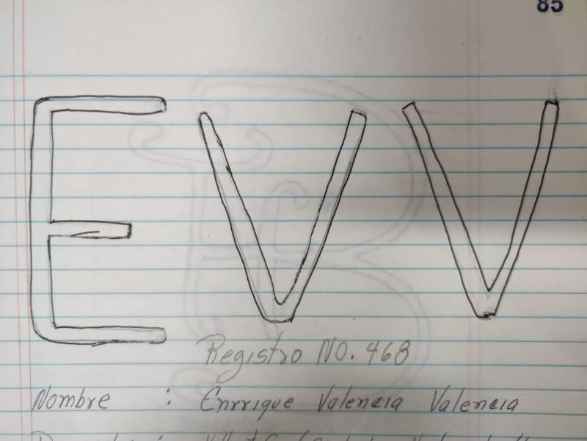 85
EVV
Registro No. 468
Nombre : Enrrique Valencia Valencia